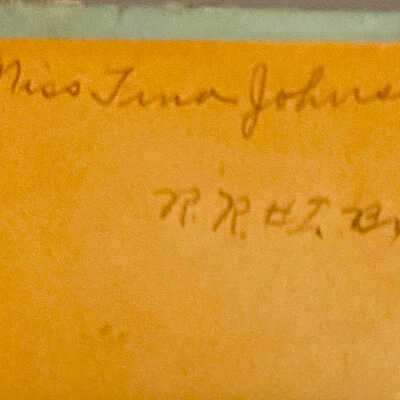 Miss Tina Johns
R. R. #1. Bx